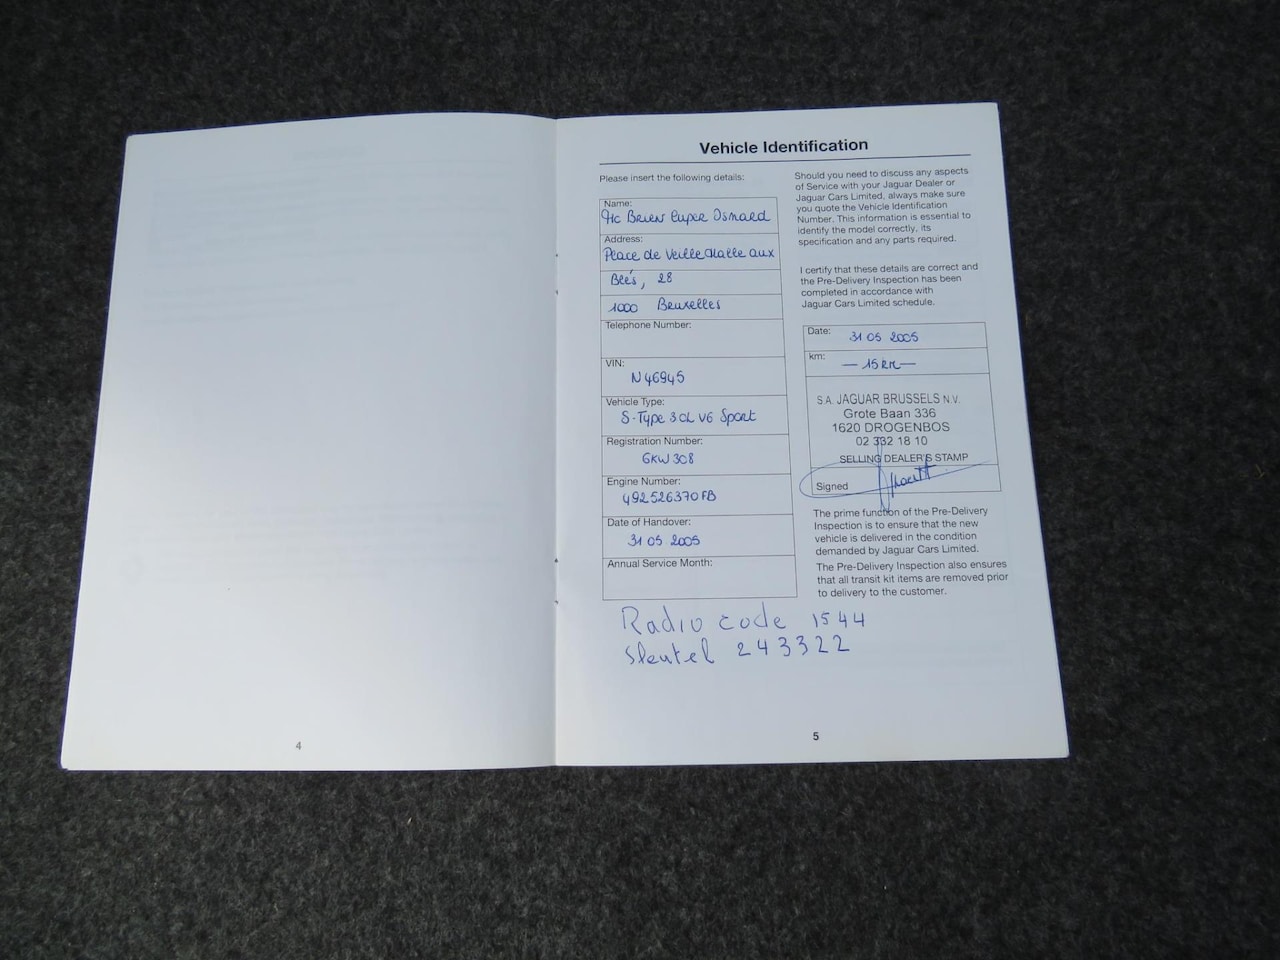 Vehicle Identification
Please insert the following details:
Name:
Mc Brien Cuper Isnard
Address:
Place de Veille Halle aux
Blés, 28
1000 Bruxelles
Telephone Number:
VIN:
N46945
Vehicle Type:
S-Type 3.0L V6 Sport
Registration Number:
GKW 308
Engine Number:
492526370FB
Date of Handover:
31 05 2005
Annual Service Month:
Radio code 1544
Sleutel 243322
Should you need to discuss any aspects
of Service with your Jaguar Dealer or
Jaguar Cars Limited, always make sure
you quote the Vehicle Identification
Number. This information is essential to
identify the model correctly, its
specification and any parts required.
I certify that these details are correct and
the Pre-Delivery Inspection has been
completed in accordance with
Jaguar Cars Limited schedule.
Date:
31 05 2005
km:
— 15 km —
S.A. JAGUAR BRUSSELS N.V.
Grote Baan 336
1620 DROGENBOS
02 332 18 10
SELLING DEALER'S STAMP
Signed
The prime function of the Pre-Delivery
Inspection is to ensure that the new
vehicle is delivered in the condition
demanded by Jaguar Cars Limited.
The Pre-Delivery Inspection also ensures
that all transit kit items are removed prior
to delivery to the customer.
4
5